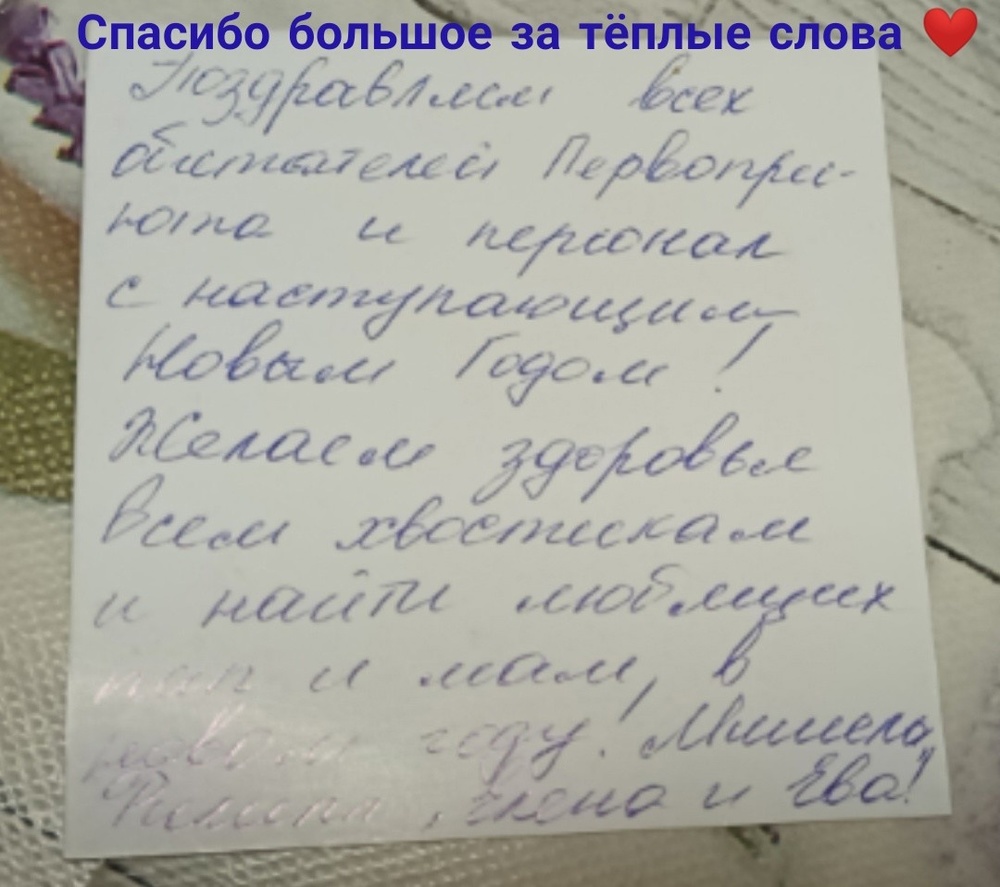 Спасибо большое за тёплые слова ❤️
Поздравляем всех
обитателей Первопри-
юта и персонал
с наступающим
Новым Годом!
Желаем здоровья
всем хвостикам
и найти любящих
пап и мам, в
новом году! Мишель,
Филипп, Елена и Ева!